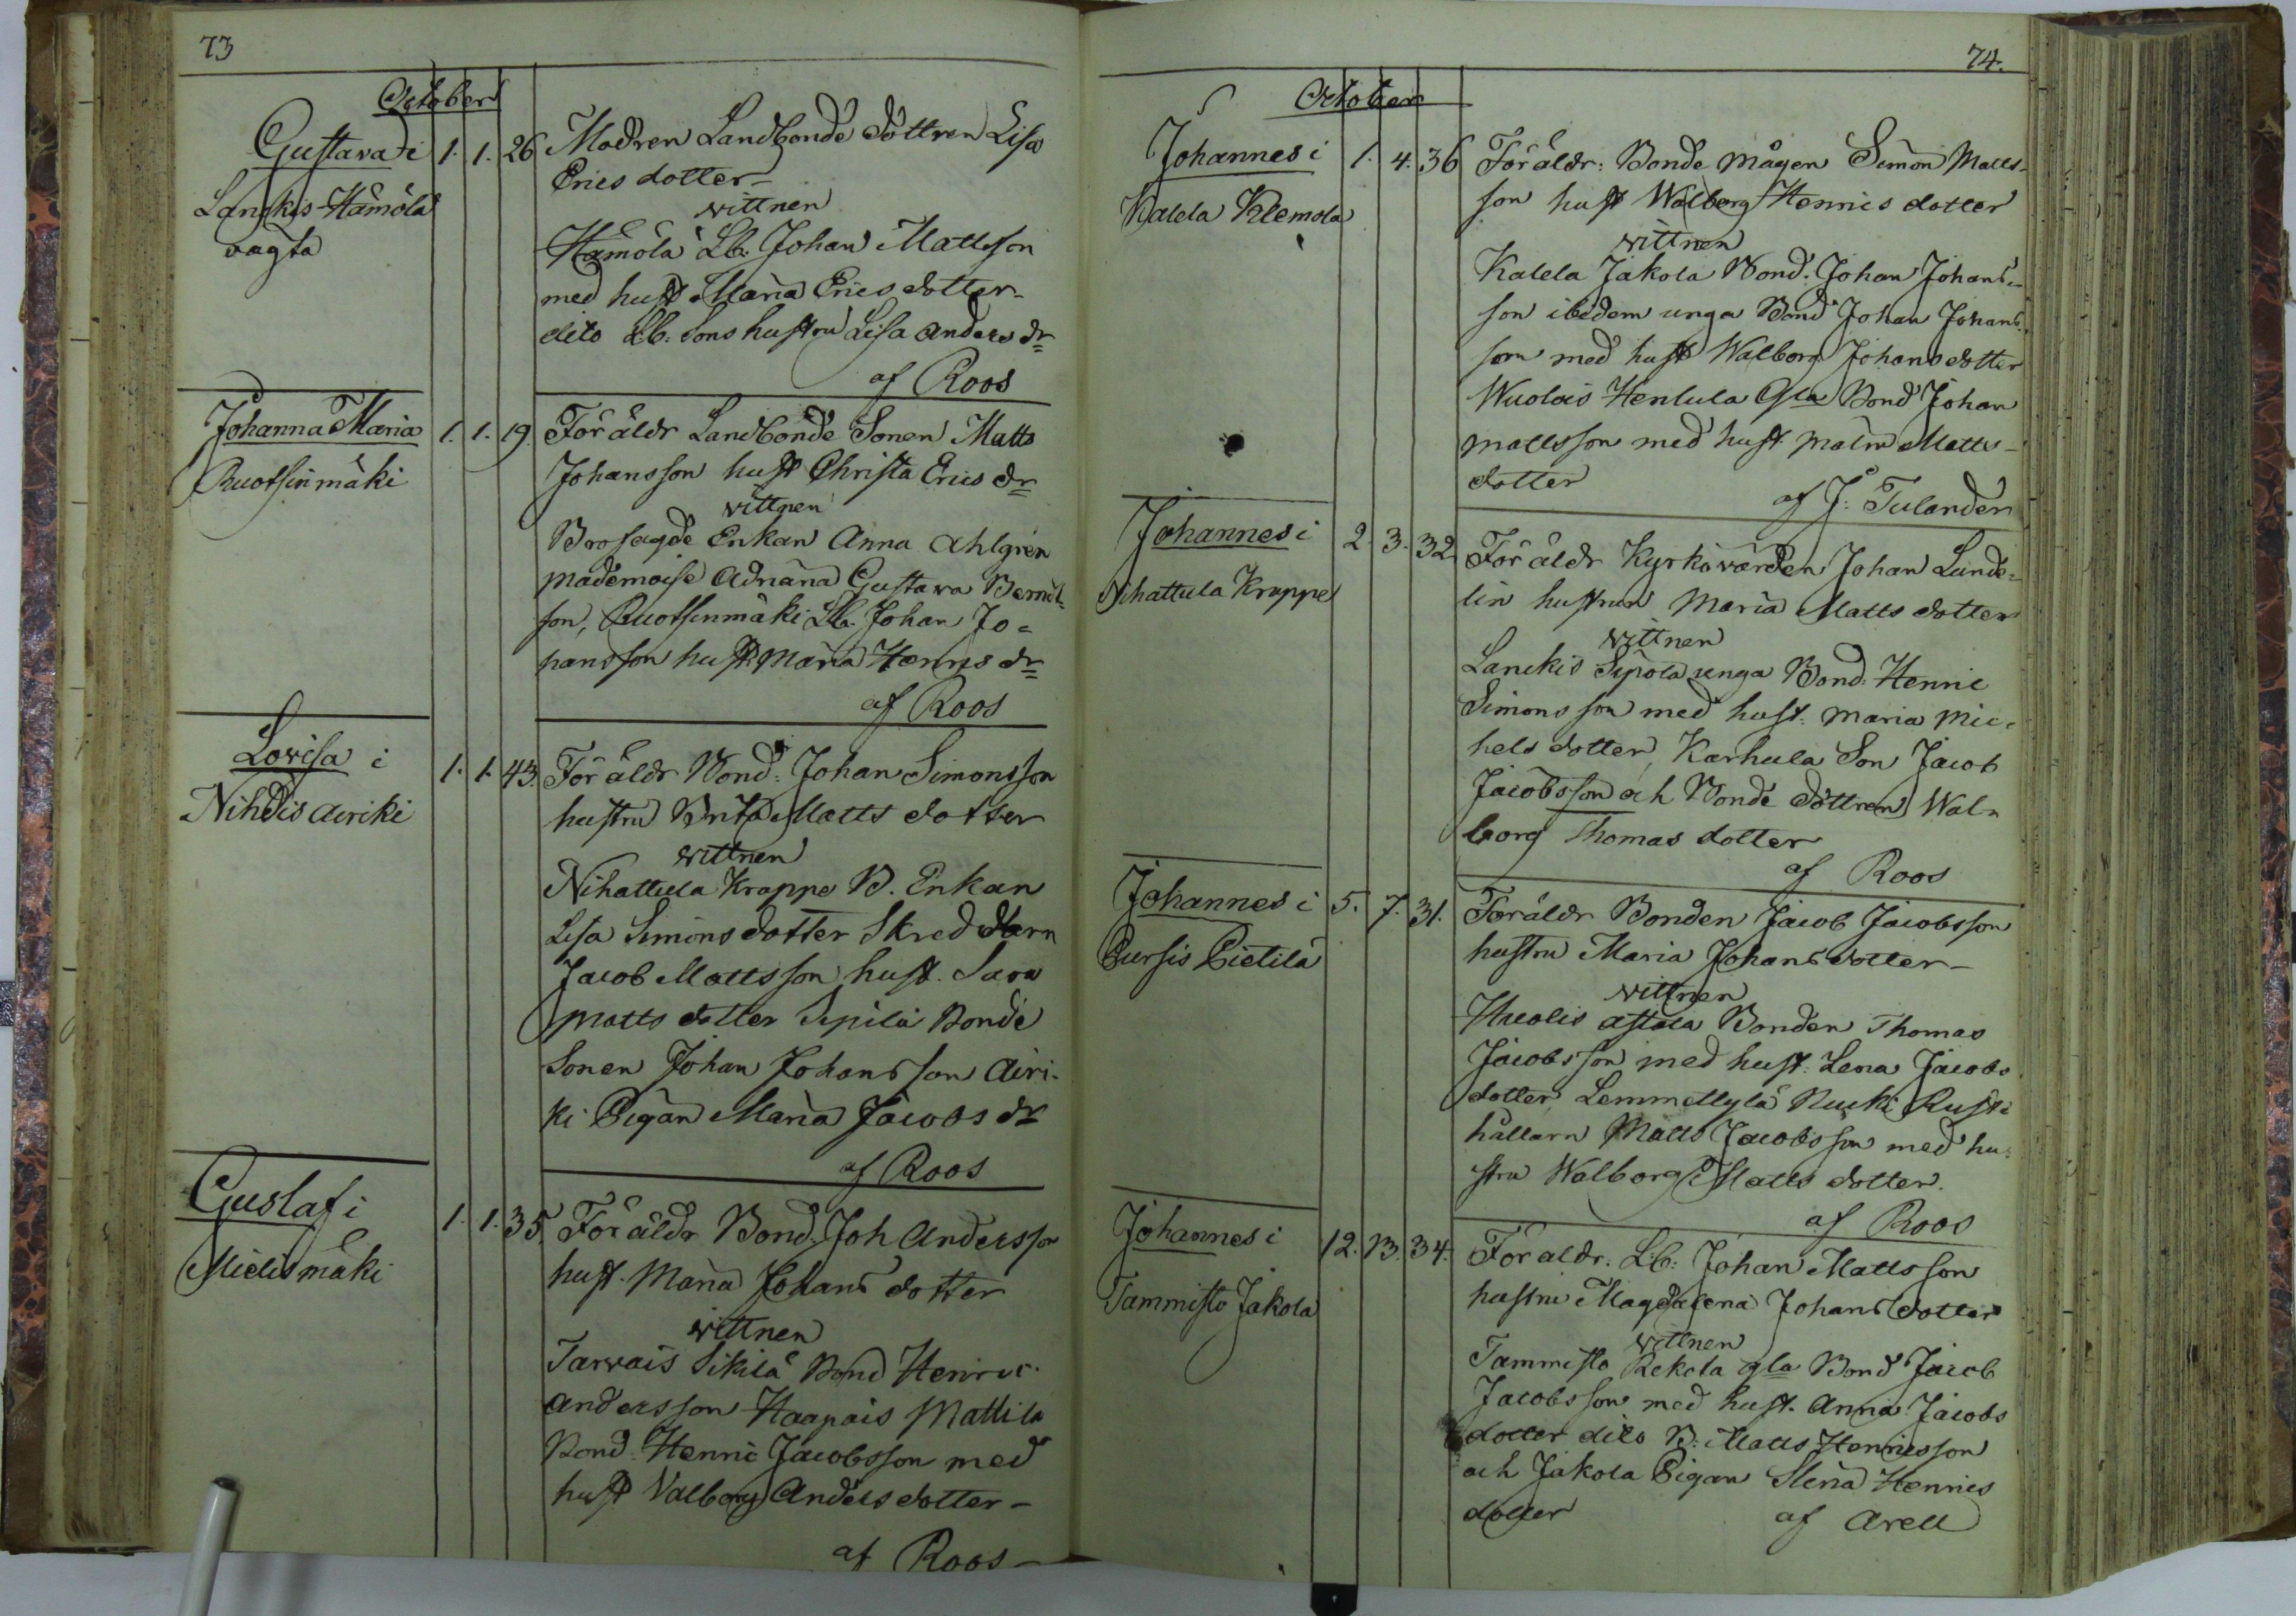 73
October
Gustava i 1. 1. 26 Modren Landbonde dottren Lisa
Ericsdotter-
Lanckis Hämölä
vagta
vittnen
Hämölä Lb. Johan Mattsson
med hust Maria Ericsdotter-
dito Lb: Sons hustru Lisa Anders dr
af Roos
Johanna Maria 1. 1. 19. Föräldr Landbonde Sonen Matts
Ruotsinmäki
Johansson hust Christa Erics dr
vittnen
Enkan Anna Ahlgren
Mademoise Adriana Gustava
son, Ruotsinmäki Lb. Johan Jo=
hansson hust Maria Henrics dr
af Roos
Lovisa i 1. 1. 43. Föräldr Bond: Johan Simonsson
Nihdis Airiki
hustru Brita Matts dotter
vittnen
Nihattula Krappe B. Enkan
Lisa Simonsdotter Skreddarn
Jacob Mattsson hust. Sara
Matts dotter Sipilä Bonde
Sonen Johan Johansson Airi-
ki Pigan Maria Jacobs dr
af Roos
Gustaf i 1. 1. 35. Föräldr Bond: Joh Andersson
Mielismäki
hust. Maria Johans dotter
vittnen
Tarvais Sikilä Bond Henric
Andersson Haapais Mattila
Bond: Henric Jacobsson med
hust Valborg Anders dotter-
af Roos-
74.
October
Johannes i 1. 4. 36 Föräldr: Bonde mågen Simon Matts-
Kalela Klemola
son hust Walborg Henrics dotter
vittnen
Kalela Jakola Bond. Johan Johans-
son ibidem unga Bond Johan Johans-
son med hust Walborg Johans dotter
Wuolais Henlula Gla Bond Johan
Mattsson med hust Malin Matts-
dotter
af J: Tulander
Johannes i 2. 3. 32 Föräldr Kyrkovärden Johan Lunde=
Nihattula Krappe
lin hustrun Maria Matts dotter
vittnen
Lanckis Sipola unga Bond: Henric
Simons son med hust: Maria Mic=
hels dotter, Karhula Son Jacob
Jacobsson och Bonde dottren Wal=
borg Thomas dotter
af Roos
Johannes i 5. 7. 31. Föräldr Bonden Jacob Jacobsson
Eursis Pietilä
hustru Maria Johans dotter-
vittnen
Astala Bonden Thomas
Jacobsson med hust: Lena Jacobs
dotter, Lemmettylä Ruski Rust
hållarn Matts Jacobsson med hu=
stru Walborg Matts dotter.
af Roos
Johannes i 12. 13. 34. Föräldr: Lb: Johan Mattsson
Tammisto Jakola
hustru Magdalena Johans dotter
vittnen
Tammisto Rekola gla Bond Jacob
Jacobsson med hust. Anna Jacobs
dotter dito B: Matts Henricsson
och Jakola Pigan Stena Henrics
dotter
af Arell